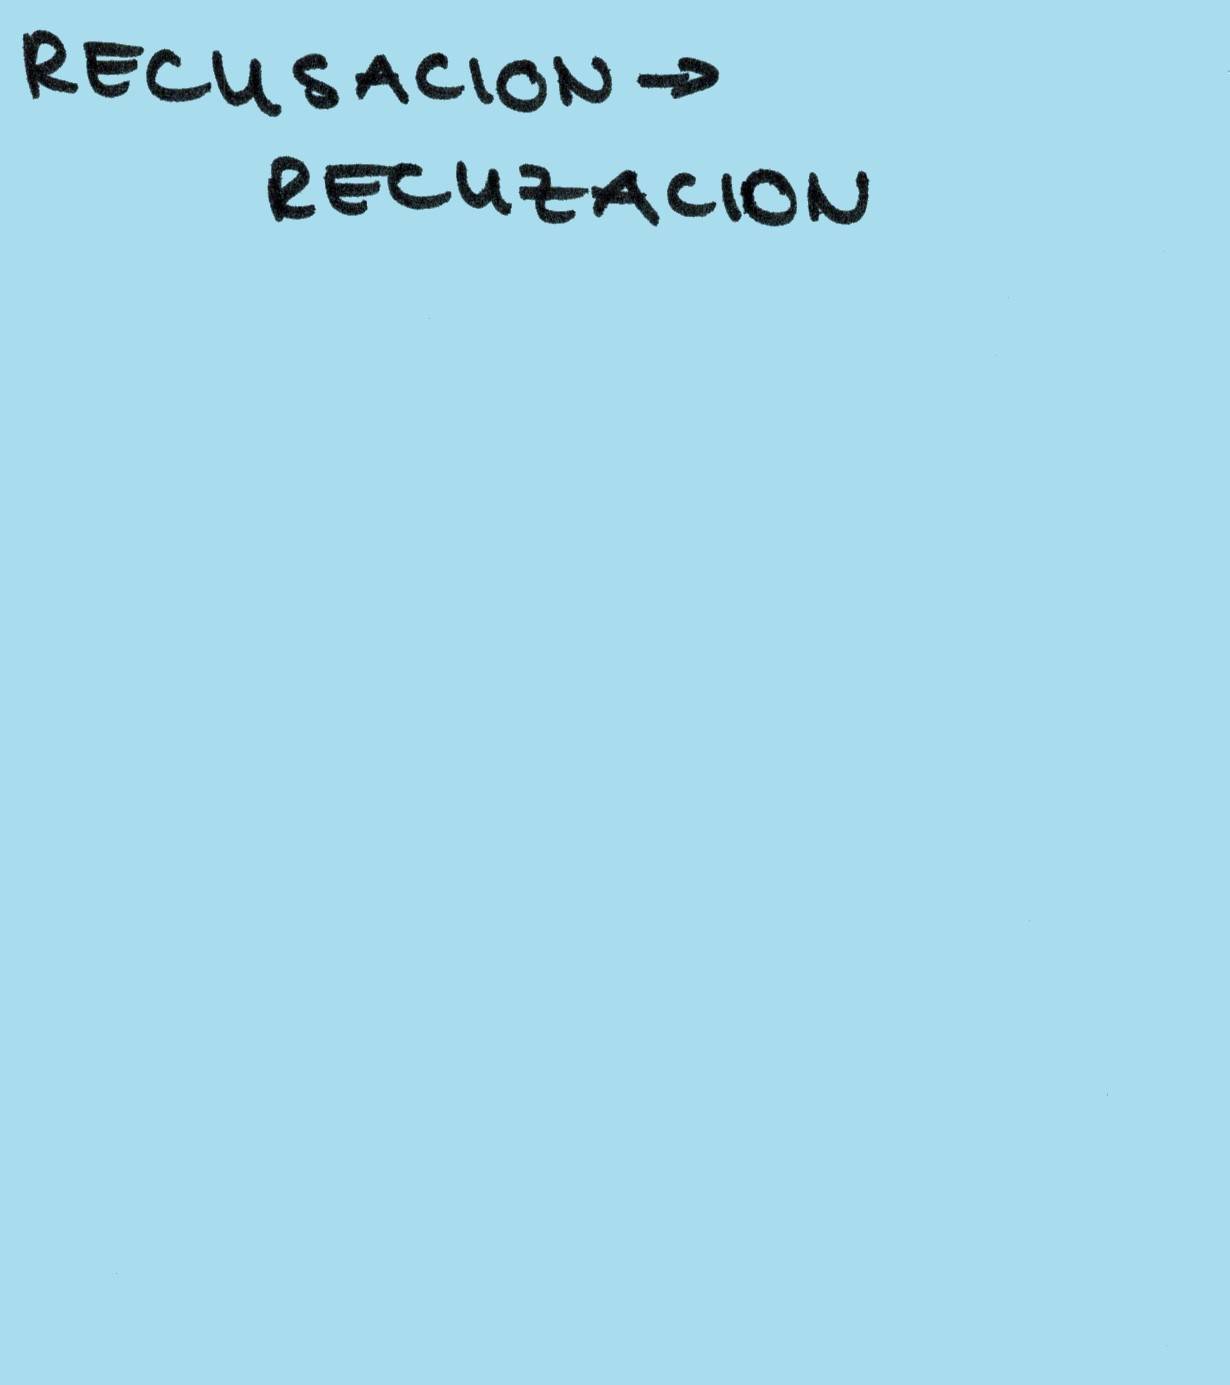 RECUSACION →
RECUZACION